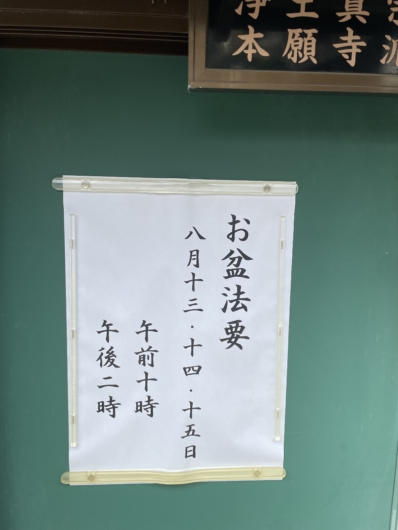 浄土真宗
本願寺派
お盆法要
八月十三・十四・十五日
午前十時
午後二時